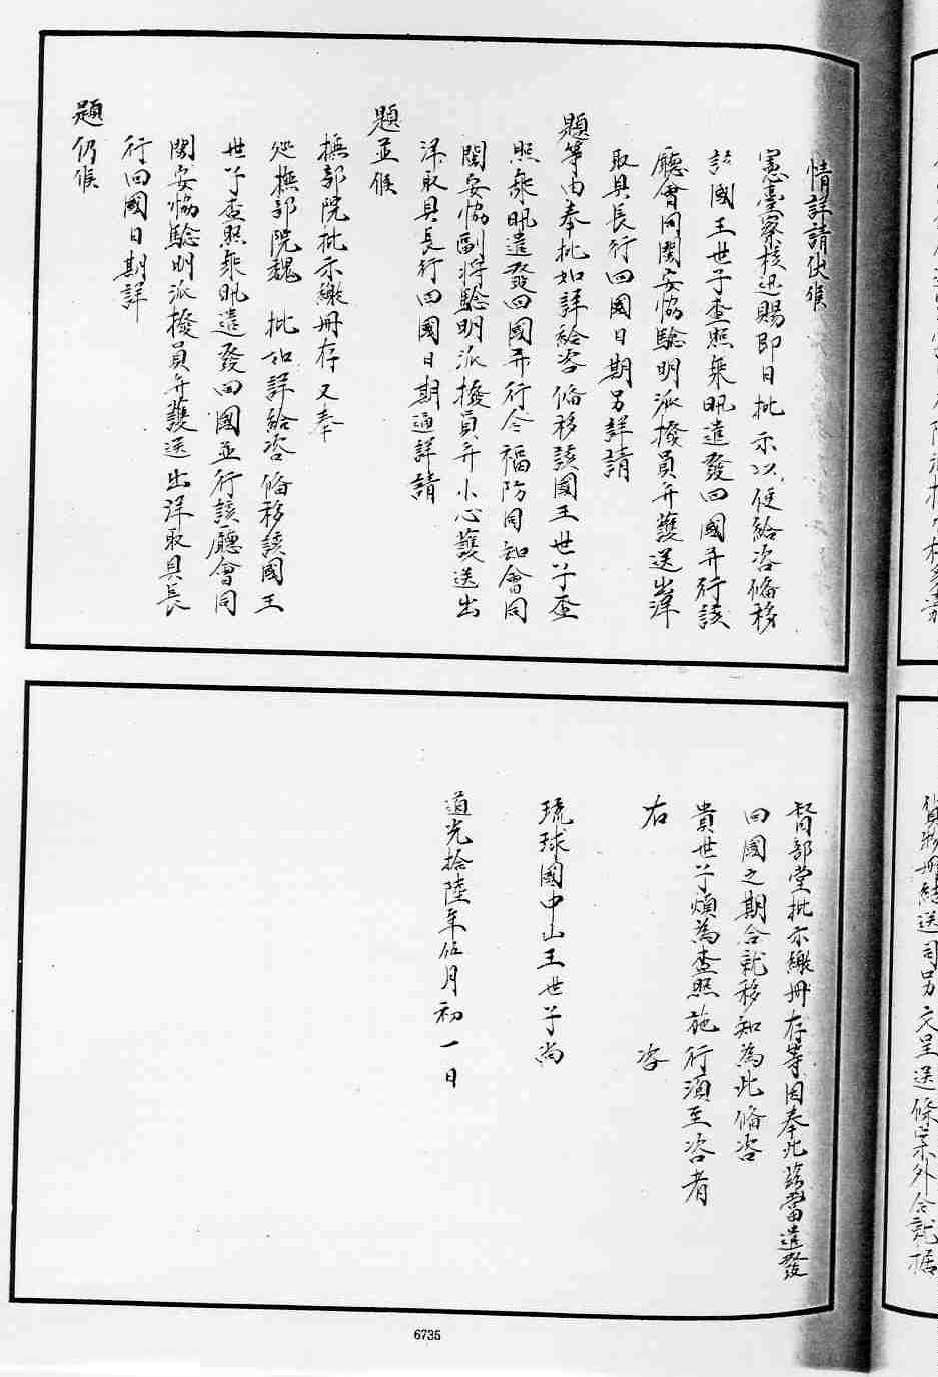 情詳請伏候
憲臺察核迅賜即日批示以便給咨備移
該國王世子查照乘汛遣發回國并行該
廳會同閩安協驗明派撥員弁護送出洋
取具長行回國日期另詳請
題等由奉批如詳給咨備移該國王世子查
照乘汛遣發回國并行令福防同知會同
閩安協副將驗明派撥員弁小心護送出
洋取具長行回國日期通詳請
題並候
撫部院批示繳冊存又奉
巡撫部院魏 批如詳給咨備移該國王
世子查照乘汛遣發回國並行該廳會同
閩安協驗明派撥員弁護送出洋取具長
行回國日期詳
題仍候
督部堂批示繳冊存等因奉此茲當遣發
回國之期合就移知為此備咨
貴世子煩為查照施行須至咨者
右 咨
琉球國中山王世子尚
道光拾陸年伍月初一日
貨物冊結送司另文呈送條案外合就據
6735